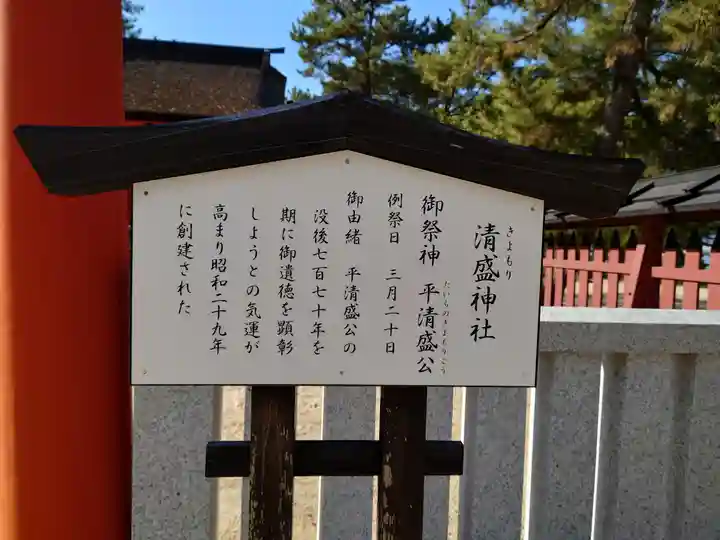 清盛神社
きよもり
御祭神 平清盛公
たいらのきよもりこう
例祭日 三月二十日
御由緒 平清盛公の
没後七百七十年を
期に御遺徳を顕彰
しようとの気運が
高まり昭和二十九年
に創建された